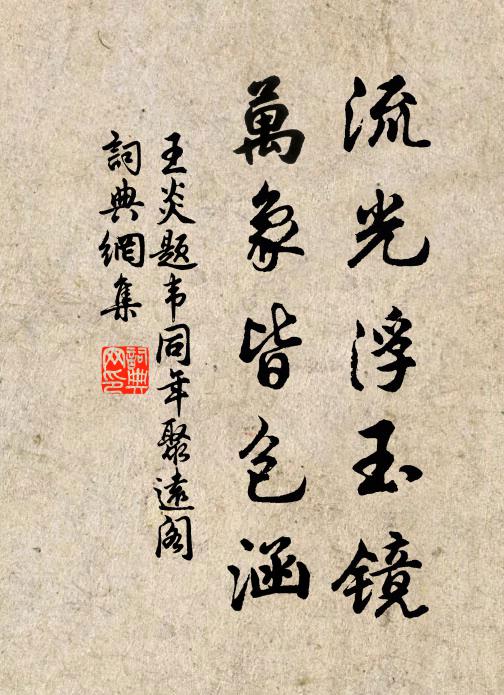 流光浮玉镜
萬象皆包涵
王炎题韦同年聚遠阁
詞典網集
詞典网印